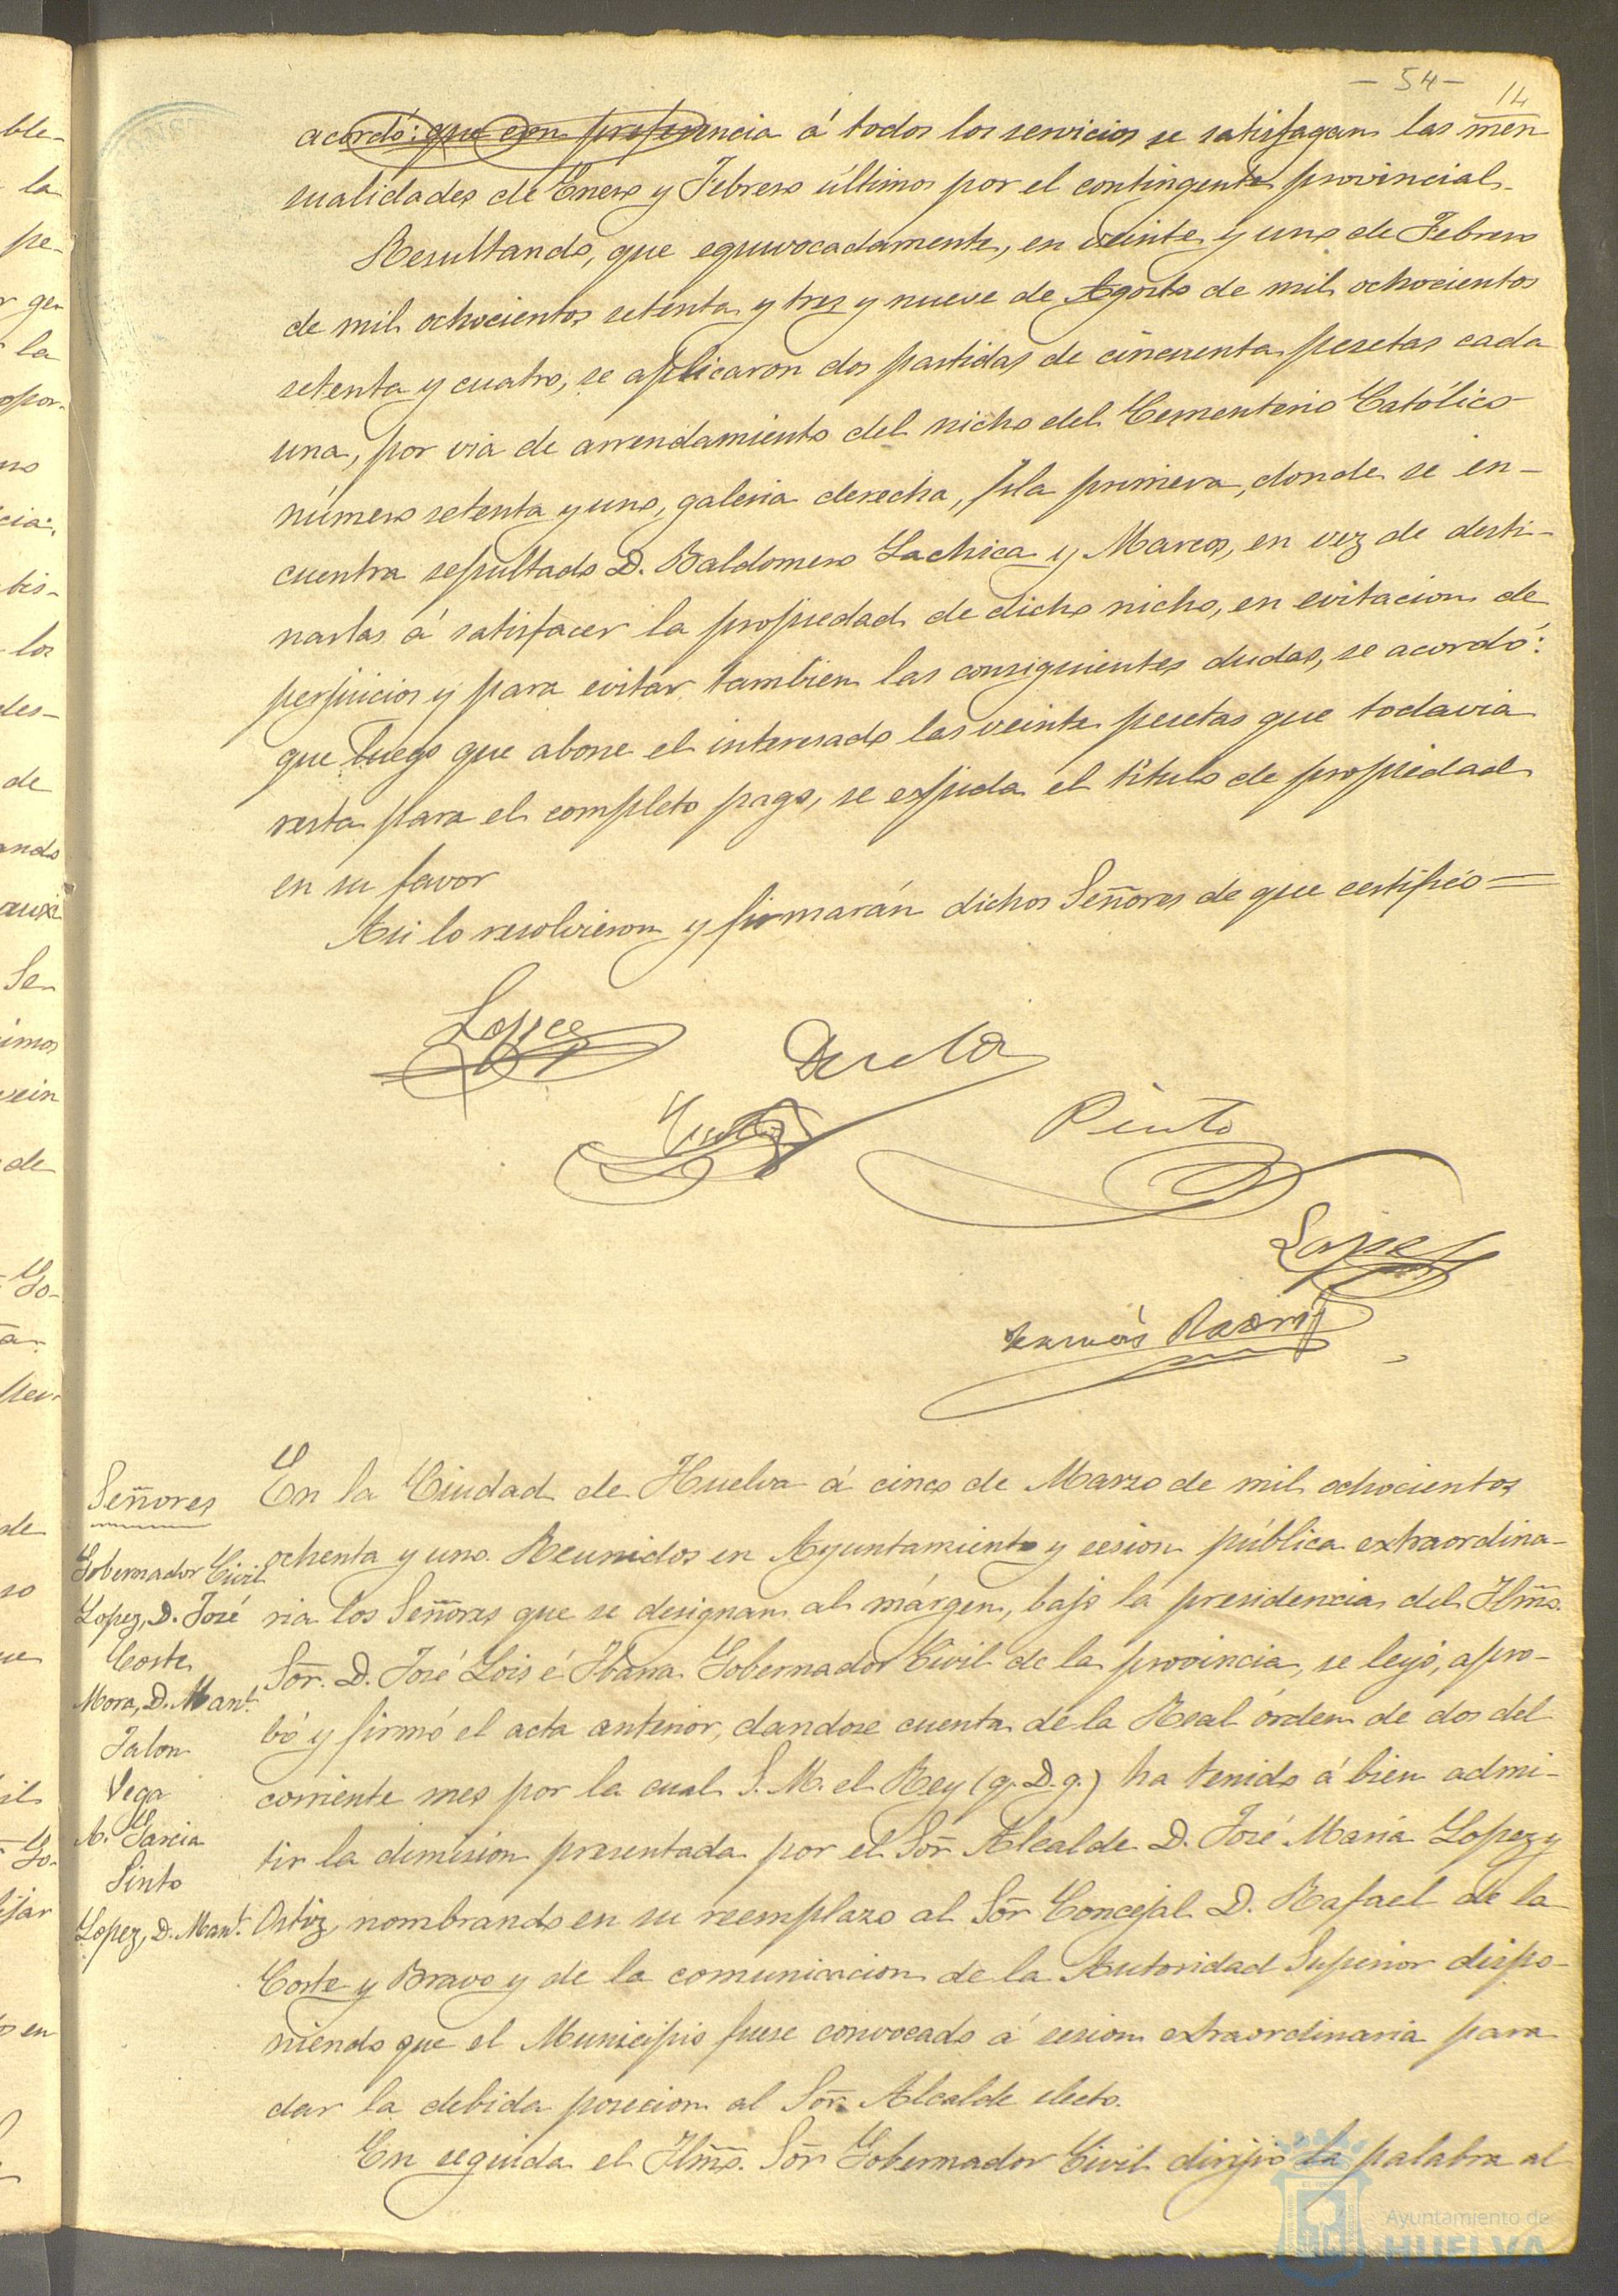 - 54 -
14
acordó: que con preferencia á todos los servicios se satisfagan las men
sualidades de Enero y Febrero últimos por el contingente provincial.
Resultando, que equivocadamente, en veinte y uno de Febrero
de mil ochocientos setenta y tres y nueve de Agosto de mil ochocientos
setenta y cuatro, se aplicaron dos partidas de cincuenta pesetas cada
una, por via de arrendamiento del nicho del Cementerio Católico
número setenta y uno, galeria derecha, fila primera, donde se en-
cuentra sepultado D. Baldomero Lachica y Marcos, en vez de desti-
narlas á satisfacer la propiedad de dicho nicho, en evitacion de
perjuicios y para evitar tambien las consiguientes dudas, se acordó:
que luego que abone el interesado las veinte pesetas que todavia
resta para el completo pago, se expida el titulo de propiedad
en su favor
Asi lo resolvieron y firmarán dichos Señores de que certifico=
Lopez
Pinto
Lopez
Señores
Gobernador Civil
Lopez, D. José
Corte
Mora, D. Manl.
Jalon
Vega
A. Garcia
Pinto
Lopez, D. Manl.
En la Ciudad de Huelva á cinco de Marzo de mil ochocientos
ochenta y uno. Reunidos en Ayuntamiento y sesion pública extraordina-
ria los Señores que se designan al márgen, bajo la presidencia del Ilmo.
Sor. D. José Lois é Ibarra Gobernador Civil de la provincia, se leyó, apro-
bó y firmó el acta anterior, dandose cuenta de la Real órden de dos del
corriente mes por la cual S. M. el Rey (q. D. g.) ha tenido á bien admi-
tir la dimision presentada por el Sor Alcalde D. José Maria Lopez y
Ortiz, nombrando en su reemplazo al Sor Concejal D. Rafael de la
Corte y Bravo y de la comunicacion de la Autoridad Superior dispo-
niendo que el Municipio fuese convocado á sesion extraordinaria para
dar la debida posecion al Sor. Alcalde electo.
En seguida el Ilmo. Sor Gobernador Civil dirijió la palabra al
Ayuntamiento de
HUELVA